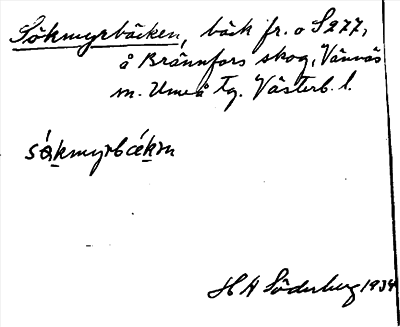 Sökmyrbäcken, bäck fr. o S277,
å Brännfors skog, Vännäs
m. Umeå tg. Västerb. l.
HA Söderberg 1934